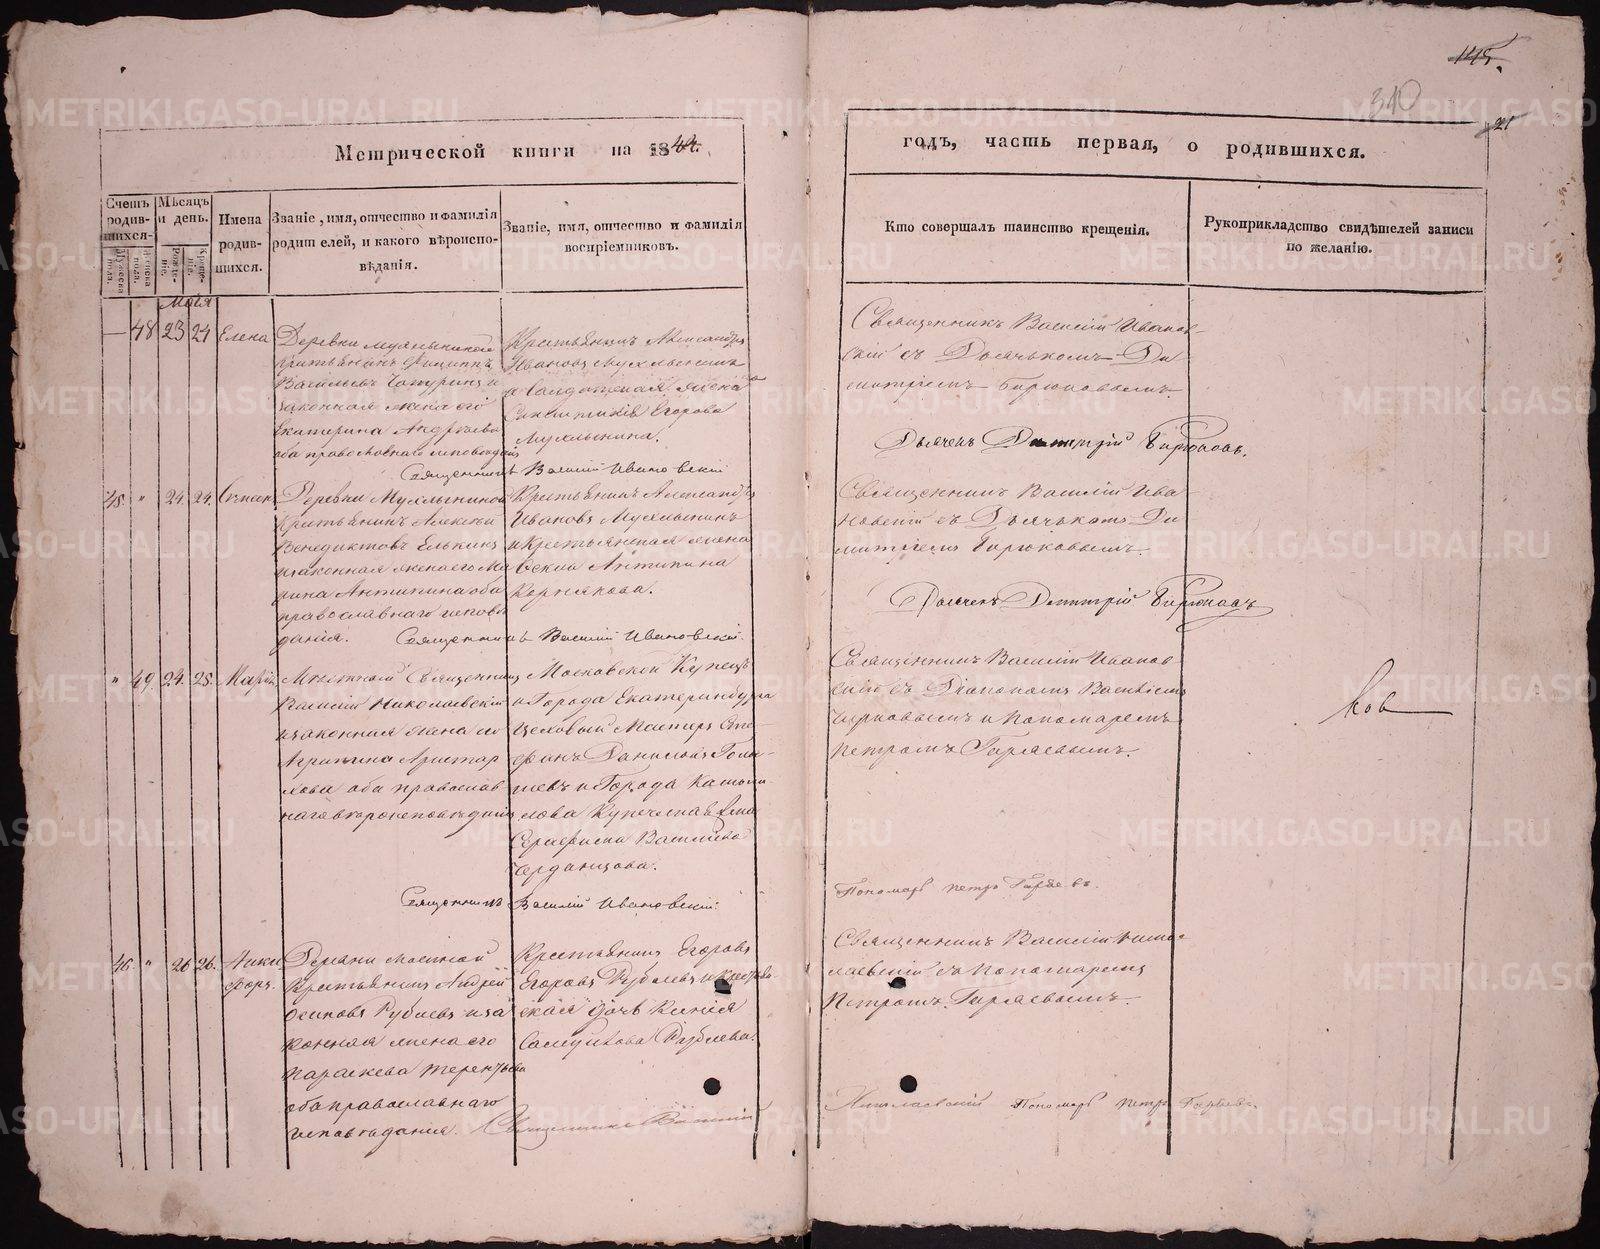 145.
340
21
Метрической книги на 1844.
годъ, часть первая, о родившихся.
Счетъ родив-шихся.
Мужеска пола.
Женска пола.
Мѣсяцъ и день.
Рожде-ніе.
Креще-ніе.
Имена родив-шихся.
Званіе, имя, отчество и фамилія
родителей, и какого вѣроиспо-
вѣданія.
Званіе, имя, отчество и фамилія
воспріемниковъ.
Кто совершалъ таинство крещенія.
Рукоприкладство свидѣтелей записи
по желанію.
Маія
— 48 23 24 Елена
Деревни
крестьянинъ Филиппъ
Васильевъ и
законная жена его
Екатерина Андреева
оба православнаго исповеданія
Крестьянинъ Александръ
Ивановъ Мухлынинъ
и Солдатская жена
Егорова
Мухлынина.
Священникъ Василій Ивановскій
Священникъ Василій Иванов-
скій съ Дьячькомъ Ди-
митріемъ Бирюковымъ.
Дьячекъ Димитрій Бирюковъ.
45. " 24. 24.
Деревни Мухлыниной
Крестьянинъ Алексѣй
Венедиктовъ Елькинъ
и законная жена его Ма
рина Антипина оба
православнаго испове
данія.
Крестьянинъ Александръ
Ивановъ Мухлынинъ
и Крестьянская жена
Антипина
Корнякова.
Священникъ Василій Ивановскій.
Священникъ Василій Ива-
новскій съ Дьячькомъ Ди
митріемъ Бирюковымъ.
Дьячекъ Димитрій Бирюковъ
" 49. 24. 25. Марія
Мѣстный Священникъ
Василій Николаевскій
и законная жена его
Агрипина Аристар
хова оба православ
наго вѣроисповѣданія
Московской Купецъ
и Города Екатеринбурга
Цеховый Мастеръ Сте-
фанъ Даниловъ
и Города
Купеческая жена
Серафима Васильева
Черданцова.
Священникъ Василій Ивановскій.
Священникъ Василій Иванов
скій съ Діакономъ Василіемъ
и Пономаремъ
Петромъ Гаряевымъ.
Пономарь Петръ Гаряевъ.
46. " 26 26. Ники
форъ.
Деревни
Крестьянинъ Андрей
Осиповъ Рублевъ и за
конная жена его
Параскева Терентьева
оба православнаго
исповѣданія.
Крестьянинъ Егоръ
Егоровъ Рублевъ и Крестьян
ская дочь Ксенія
Самуилова Рублева.
Священникъ Василій
Священникъ Василій Нико-
лаевскій съ Пономаремъ
Петромъ Гаряевымъ.
Николаевскій Пономарь Петръ Гаряевъ.
ков
METRIKI.GASO-URAL.RU